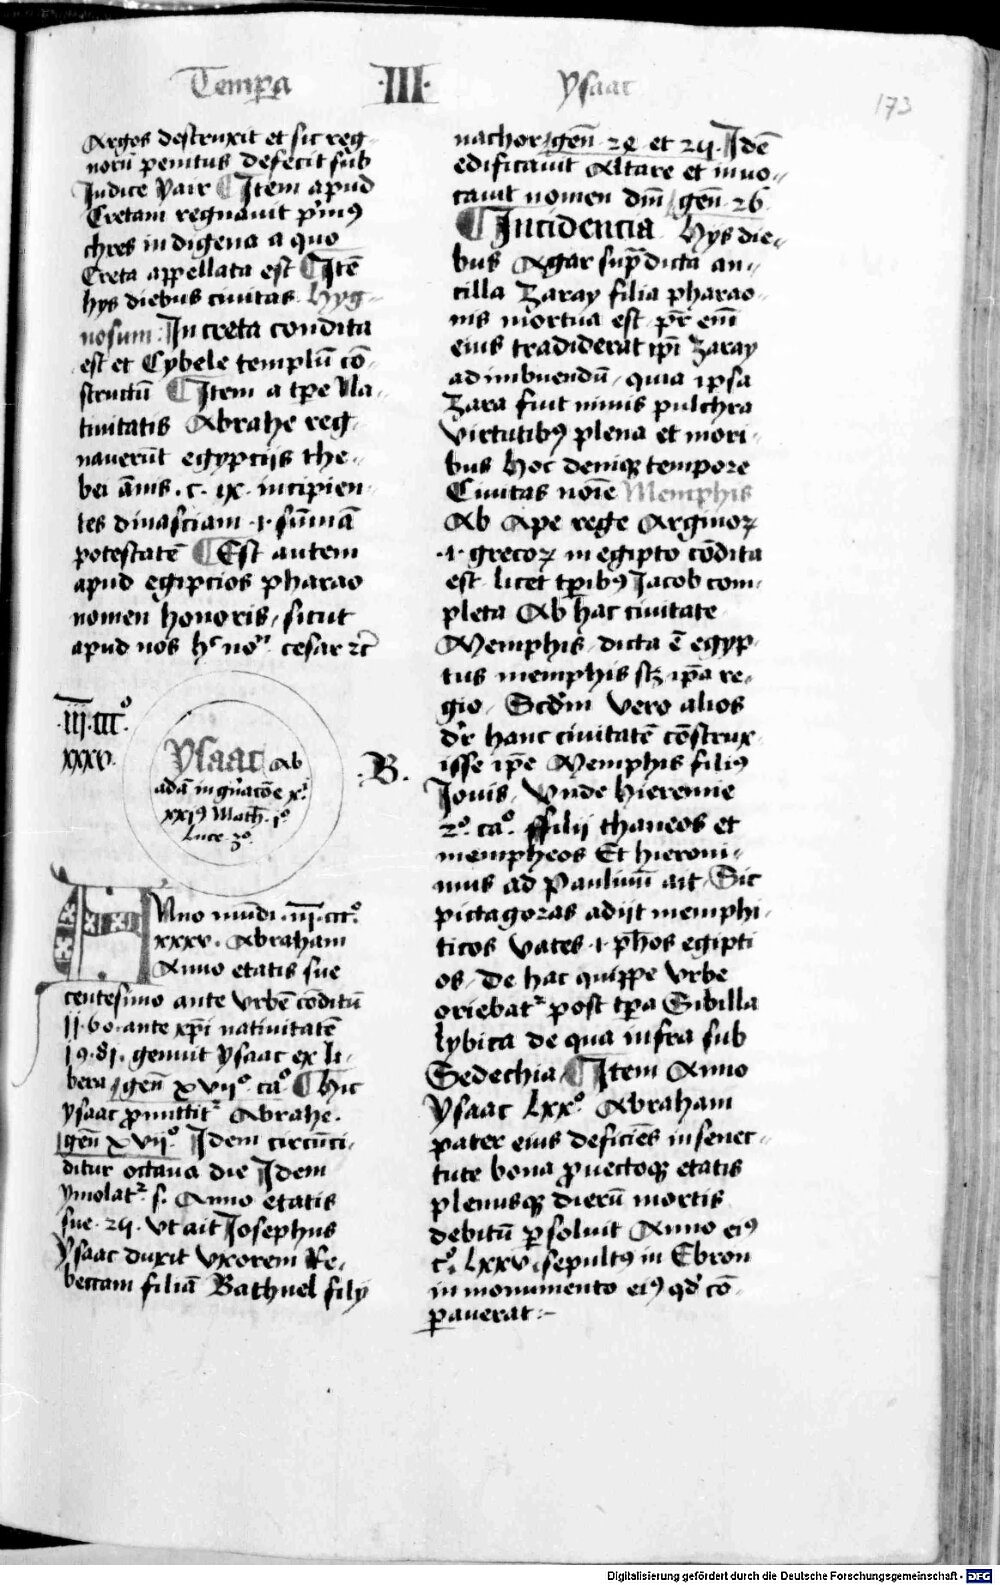 Tempora ·III· ysaac
173
Argos destruxit et sic reg-
norū penitus defecit sub
Judice yair Item apud
Cretam regnauit p'm9
chres indigena a quo
Creta appellata est Itē
hys diebus ciuitas hyg-
nosum: In creta condita
est et Cybele templū cō-
structū Item a tpe Na-
tiuitatis Abrahe reg-
nauerūt egypciis the-
bei ānis .c. ix. incipien-
tes dinasciam .i. sūmā
potestatē Est autem
apud egipcios pharao
nomen honoris, sicut
apud nos cesar ⁊c
·iii·ccc°
xxxv.
ysaac Ab
adā in gn'acōe xi
xxi9 Math. 1°
Luce. 3°.
Anno mūdi .iii.ccc°.
xxxv. Abraham
Anno etatis sue
centesimo ante vrbē cōditū
1160. ante xpi natiuitatē
1981. genuit ysaac ex li-
bera gen̄ xvii°. ca° Hic
ysaac pmittit' Abrahe.
gen̄ xvii° Idem circūci-
ditur octaua die Idem
ymolat' s. Anno etatis
sue. 25. vt ait Josephus
ysaac duxit vxorem Re-
beccam filiā Bathuel filij
nachor gen̄ 24 et 25. Idē
edificauit Altare et inuo-
cauit nomen dn̄i gen̄. 26
Incidencia. hys die-
bus Agar sup'dicta an-
cilla zaray filia pharao-
nis mortua est. pr̄ eni
eius tradiderat ipi zaray
ad imbuendū, quia ipsa
zara fuit nimis pulchra
virtutib9 plena et mori-
bus hoc deniqz tempore
Ciuitas noīe Memphis
Ab Ape rege Arginoꝝ
.i. grecoꝝ in egipto cōdita
est. licet tpib9 Jacob com-
pleta Ab hac ciuitate
Memphis, dicta ē egyp-
tus memphis scz ipa re-
gio, Scdm vero alios
dr hanc ciuitatē cōstrux-
isse ipe Memphis fili9
·B.
Jouis, vnde hieremie
2°. ca°. ffilij thaneos et
mempheos Et hieroni-
mus ad Paulinū ait, Sic
pictagoras adijt memphi-
ticos vates .i. phos egipti
os, De hac quippe vrbe
oriebat' post tpa Sibilla
lybica de qua infra sub
Sedechia, Item Anno
ysaac Lxx°. Abraham
pater eius deficiēs in senec-
tute bona puectoqz etatis
plenusqz dierū mortis
debitū psoluit Anno ei9
c°. Lxxv. sepult9 in Ebron
in monumento ei9 qd cō-
pauerat:-
Digitalisierung gefördert durch die Deutsche Forschungsgemeinschaft - DFG